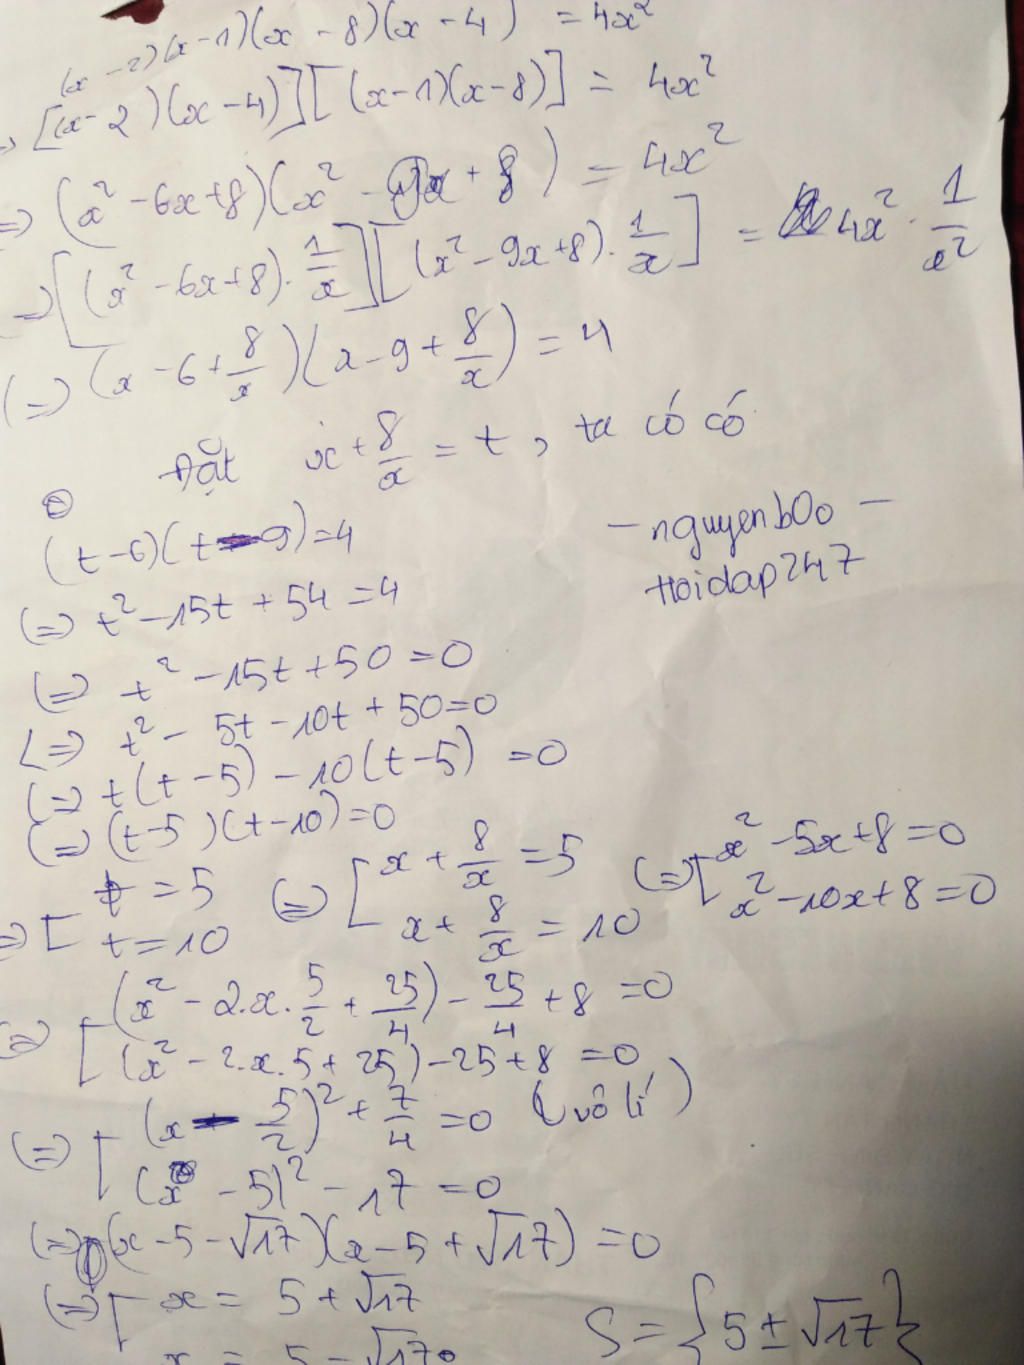 (x - 2)(x - 1)(x - 8)(x - 4) = 4x²
=> [(x - 2)(x - 4)][(x - 1)(x - 8)] = 4x²
=> (x² - 6x + 8)(x² - 9x + 8) = 4x²
=> [(x² - 6x + 8) . 1/x][(x² - 9x + 8) . 1/x] = 4x² . 1/x²
(=> (x - 6 + 8/x)(x - 9 + 8/x) = 4
Đặt x + 8/x = t, ta có có
(t - 6)(t - 9) = 4
- nguyenb00 -
Hoidap247
(=> t² - 15t + 54 = 4
(=> t² - 15t + 50 = 0
<=> t² - 5t - 10t + 50 = 0
(=> t(t - 5) - 10(t - 5) = 0
(=> (t - 5)(t - 10) = 0
=> [ t = 5 (=> [ x + 8/x = 5 (=> [ x² - 5x + 8 = 0
t = 10 x + 8/x = 10 x² - 10x + 8 = 0
(=> [ (x² - 2.x.5/2 + 25/4) - 25/4 + 8 = 0
(x² - 2.x.5 + 25) - 25 + 8 = 0
(=> [ (x - 5/2)² + 7/4 = 0 (vô lí)
(x - 5)² - 17 = 0
(=> (x - 5 - √17)(x - 5 + √17) = 0
(=> [ x = 5 + √17
x = 5 - √17
S = {5 ± √17}